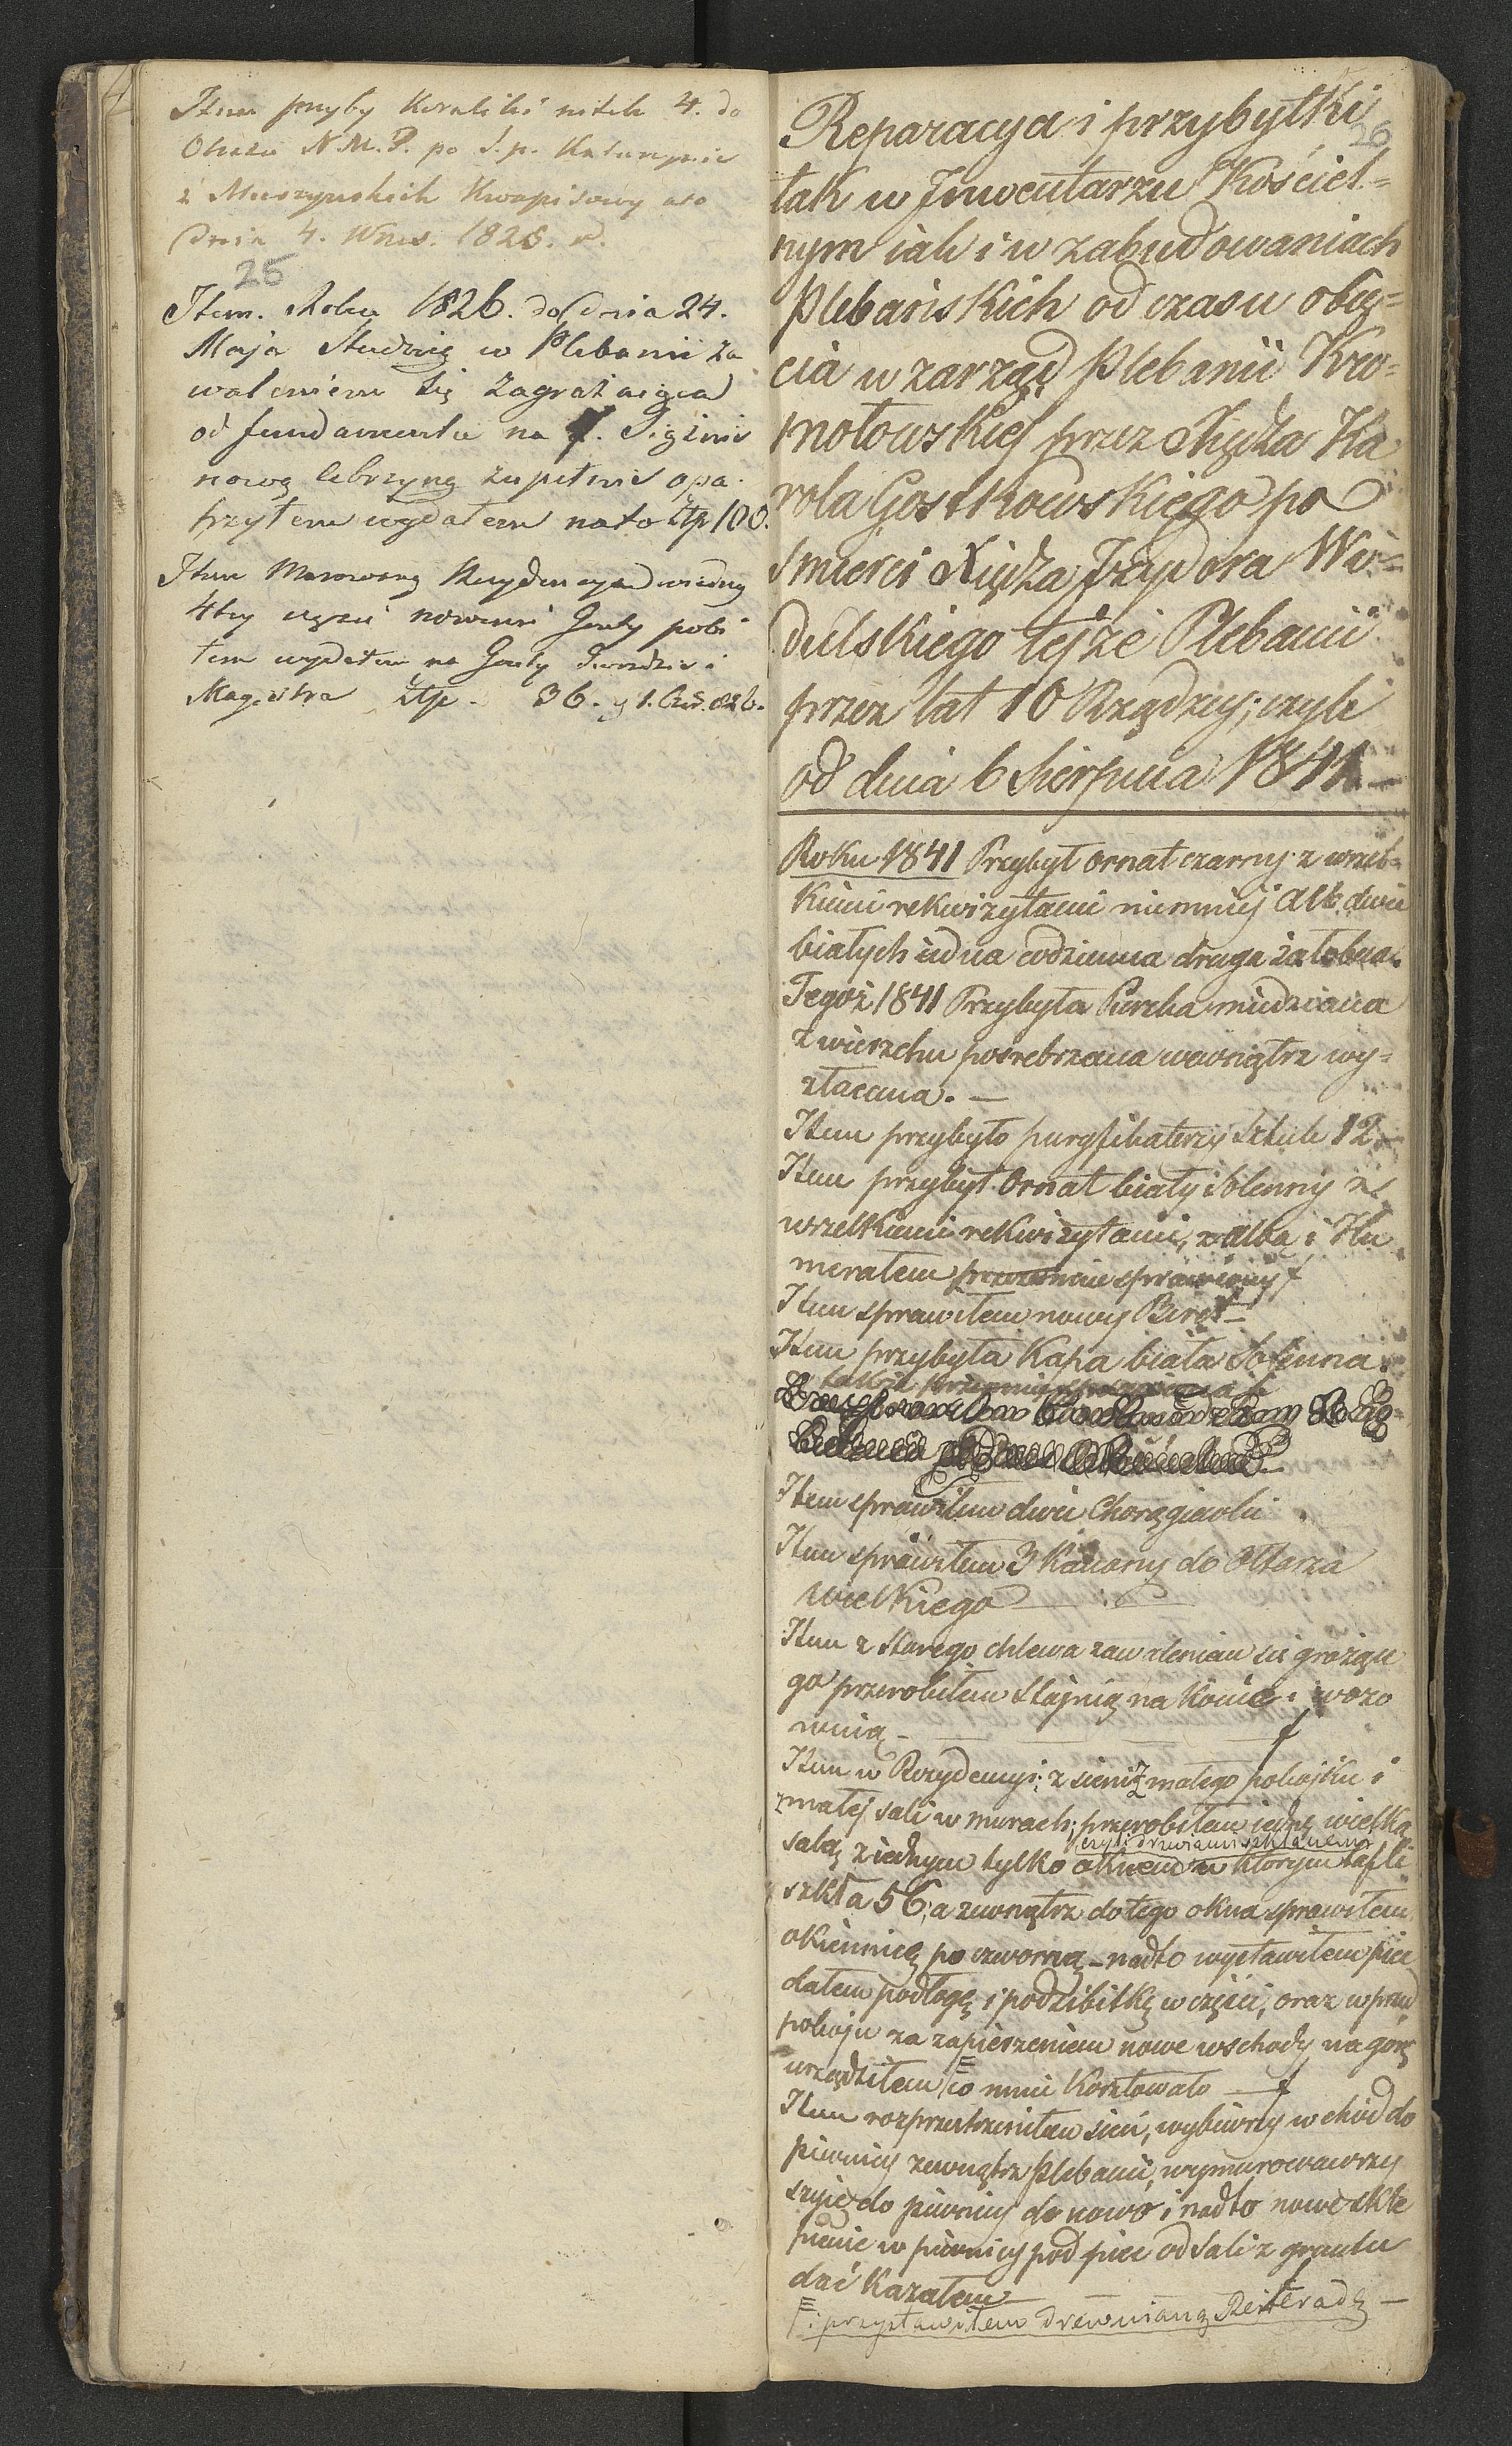 Item przyby Koralików nitek 4. do
Obrazu N.M.P. po ś.p. Katarzynie
z Muszyńskich Kwapisowy
dnia 4. 1826. r.
25
Item. Roku 1826. do dnia 24.
Maja Studnią w Plebanii za
waleniem się zagrażaiącą
od fundamentu na
nową zupełnie opa
przyłem wydałem na to Złp 100.
Item Murowaną Rezydencyą
4tey części nowemi Gonty pobi
łem wydałem na Gonty Gwoździe i
Magistra Złp. 36. 1. 826.
26
Reparacya i przybytki
tak w Inwentarzu Kościel=
nym iak i w zabudowaniach
Plebańskich od czasu obię=
cia w zarząd Plebanii Kro=
motowskiej przez Xiędza Ka
rola Gostkowskiego po
śmierci Xiędza Izydora Wi=
dulskiego tejże Plebanii
przez lat 10 Rządzcy; czyli
od dnia 6 Sierpnia 1841 —
Roku 1841 Przybył ornat czarny z wszel=
kiemi rekwizytami niemniej Alb dwie
białych iedna codzienna druga żałobna.
Tegoż 1841 Przybyła Puszka miedziana
z wierzchu posrebrzana wewnątrz wy=
złacana. —
Item przybyło puryfikaterzy Sztuk 12 —
Item przybył Ornat biały Solenny z
wszelkiemi rekwizytami, z albą i Hu
merałem przezemnie sprawiony
Item sprawiłem nowy Biret —
Item przybyła Kapa biała Solenna.
także przezemnie sprawiona
Item sprawiłem dwie Chorągiewki
Item sprawiłem 3 Kanony do Ołtarza
Wielkiego —
Item z starego chlewa zawaleniem się grożące
go przerobiłem Stajnią na Konie i wozo
wnią —
Item w Rezydencyi; z sieni z małego pokojku i
z małej sali w murach; przerobiłem iedną wielką
czyli drzwiami szklanemi
salę z iednym tylko oknem w którym tafli
szkła 56; a zewnątrz do tego okna sprawiłem
okiennicę poczworną — nadto wystawiłem piec
dałem podłogę i podsibitkę w części, oraz w przed
pokoju za zapierzeniem nowe wschody na górę
urządziłem co mnie Kosztowało —
Item rozprzestrzeniłem sień, wybiwszy wchód do
piwnicy zewnątrz Plebanii, wymurowawszy
szyię do piwnicy de nowo i nadto nowe skle
pienie w piwnicy pod piec od Sali z gruntu
dać Kazałem —
i przystawiłem drewnianą Reiteradę —